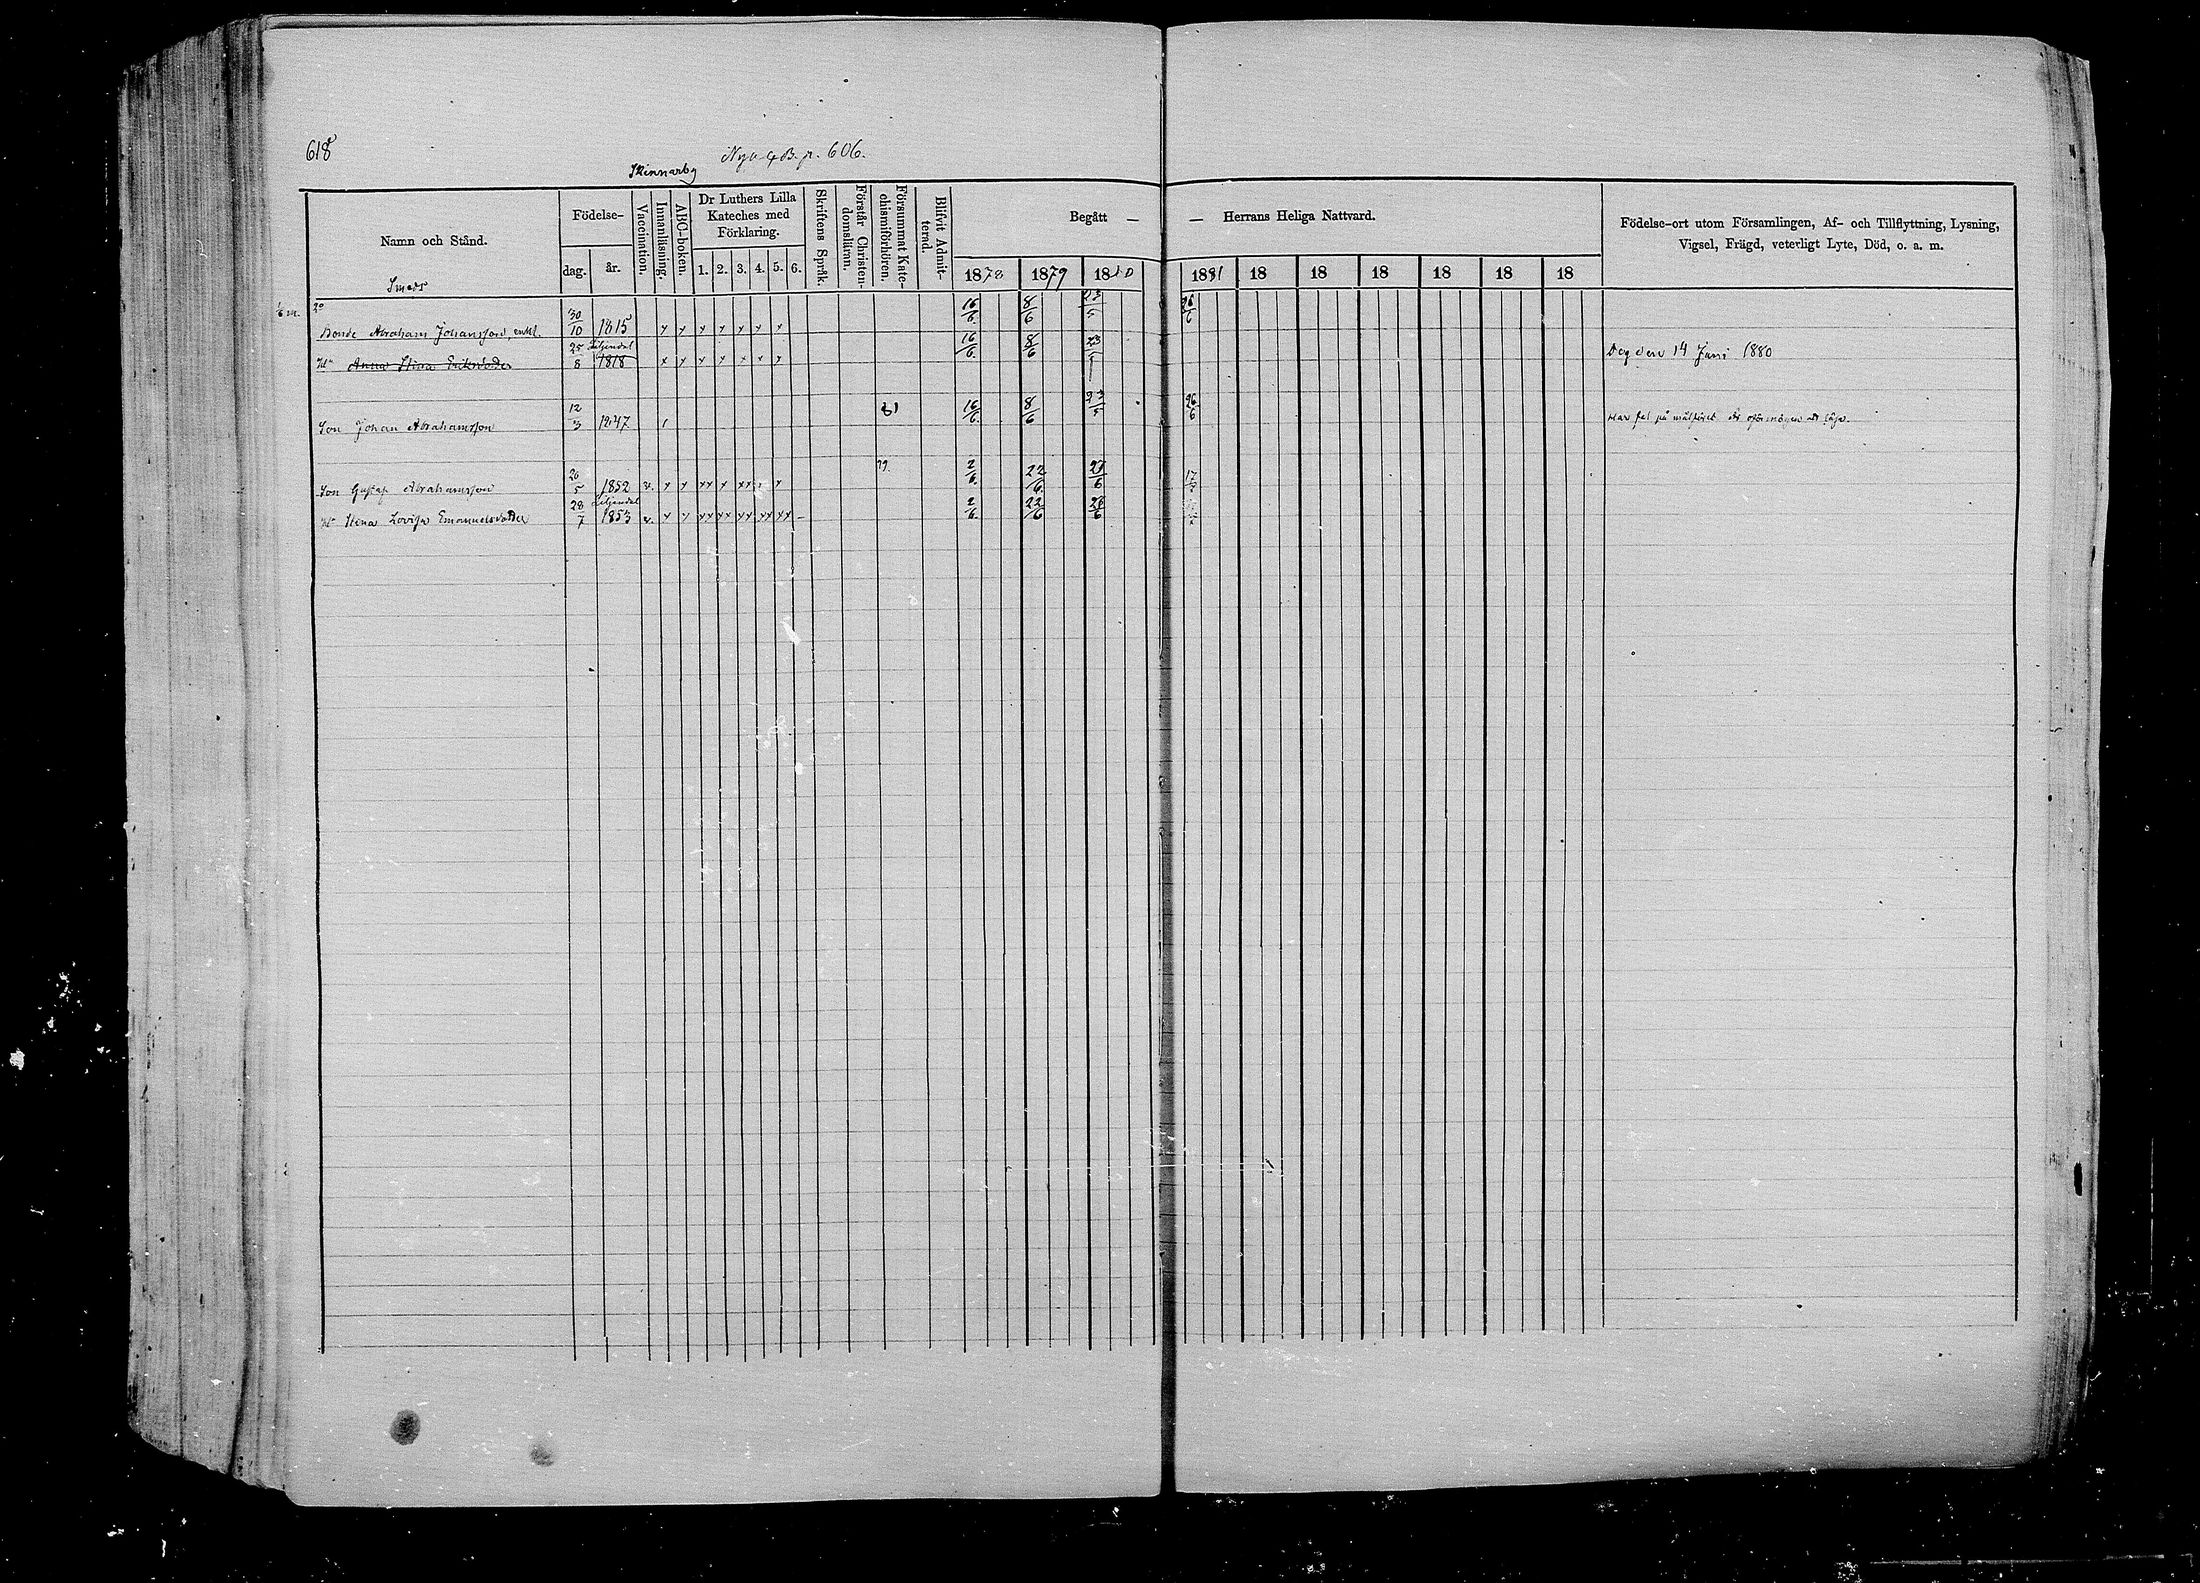 618
Nya C.B. p. 606.
Skinnarby
Namn och Stånd.
Födelse-
dag.
år.
Vaccination.
Innanläsning.
ABC-boken.
Dr Luthers Lilla
Kateches med
Förklaring.
1. 2. 3. 4. 5. 6.
Skriftens Språk.
Förstår Christen-
domsläran.
Försummat Kate-
chismiförhören.
Blifvit Admit-
terad.
Begått — — Herrans Heliga Nattvard.
1878 1879 1880 1881 18 18 18 18 18 18
Födelse-ort utom Församlingen, Af- och Tillflyttning, Lysning,
Vigsel, Frägd, veterligt Lyte, Död, o. a. m.
Smeds
Bonde Abraham Johansson, enkl. 30/10 1815 x x x x x x x 16/6 8/6 23/5 26/6
Hu Anna Stina Eriksdotter 25/8 Liljendal 1818 x x x x x x x 16/6 8/6 23/5 Dog den 14 Juni 1880
Son Johan Abrahamsson 12/3 1847 81 16/6 8/6 23/5 26/6 Har fel på målföret
Son Gustaf Abrahamsson 20/5 1852 v. x x xx x xx x 79. 2/6 22/6 27/6
Hu Stina Lovisa Emanuelsdotter 28/7 Liljendal 1853 v. x x xx xx xx xx xx – 2/6 22/6